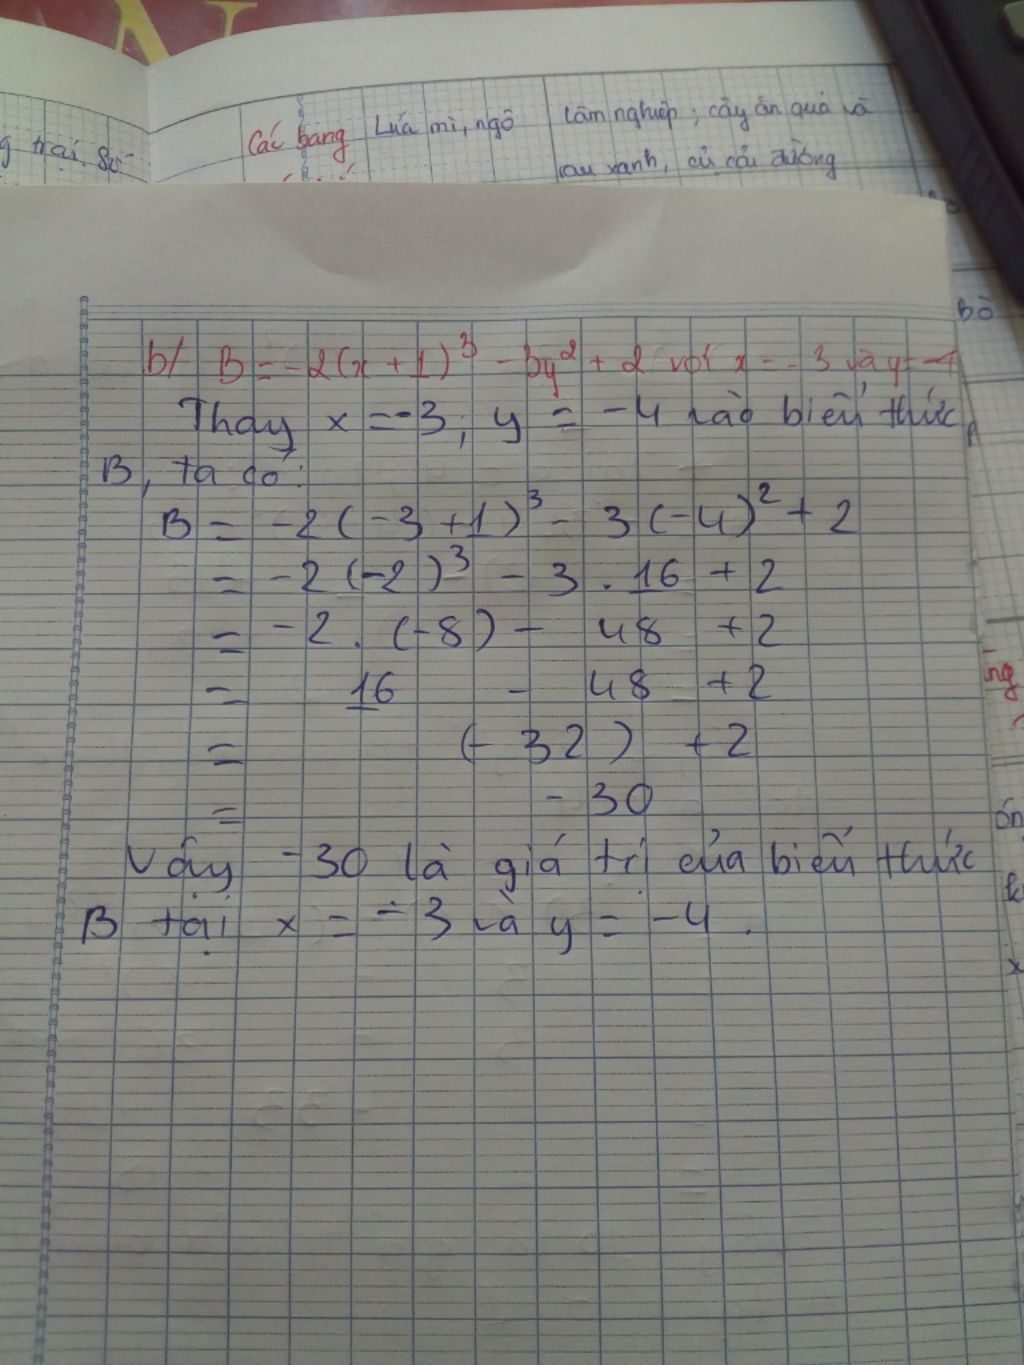 g trại. Sữ
Các bang
Lúa mì, ngô
Lâm nghiệp; cây ăn quả và
rau xanh, củ cải đường
Bò
b/ B = -2(x + 1)³ - 3y² + 2 với x = -3 và y = -4
Thay x = -3; y = -4 vào biểu thức
B, ta có:
B = -2(-3 + 1)³ - 3(-4)² + 2
= -2(-2)³ - 3 . 16 + 2
= -2 . (-8) - 48 + 2
= 16 - 48 + 2
= (-32) + 2
= -30
Vậy -30 là giá trị của biểu thức
B tại x = -3 và y = -4.